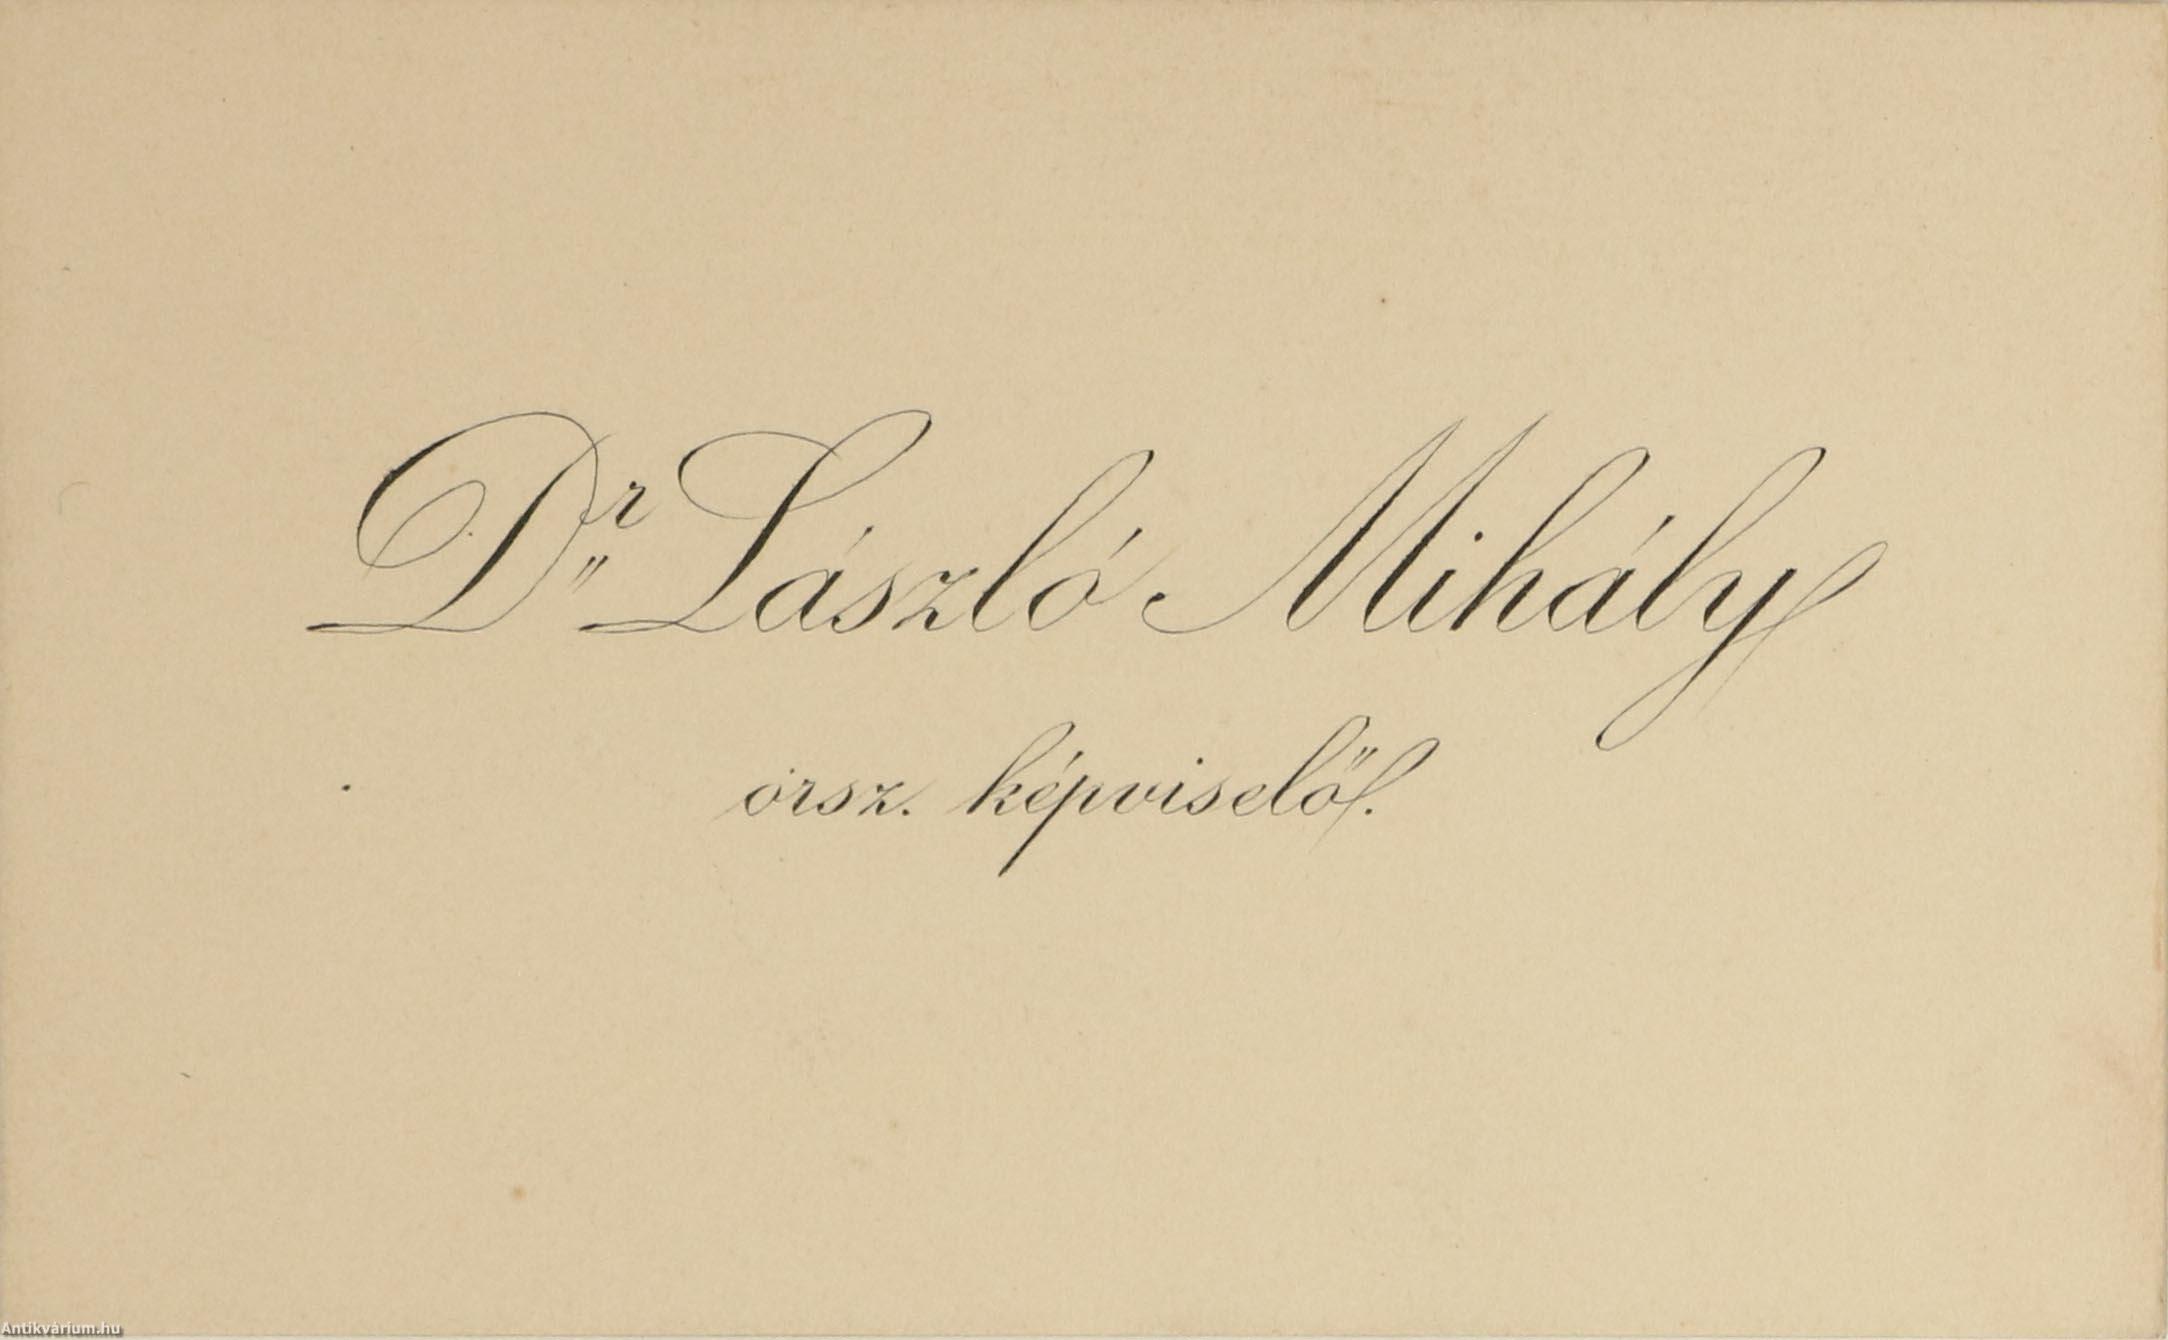 Dr. László Mihály
orsz. képviselő.
Antikvárium.hu